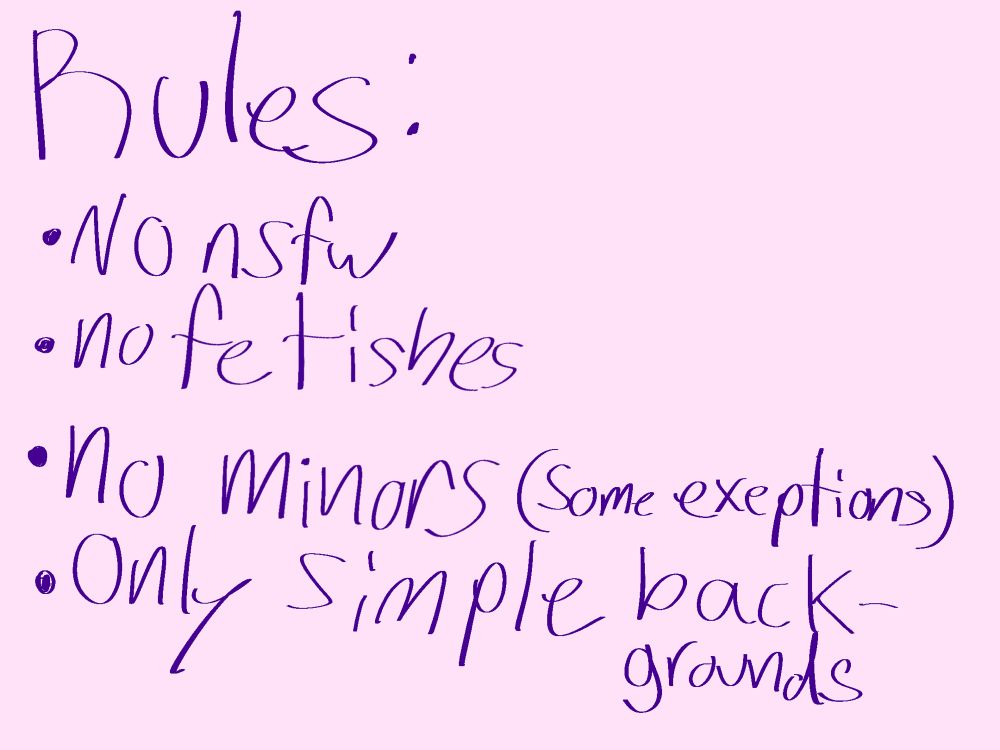 Rules:
• No nsfw
• no fetishes
• no minors (some exeptions)
• Only simple back-
grounds